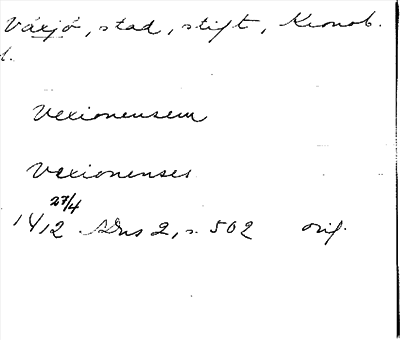 Växjö, stad, stift, Kronob.
l.
Vexionensem
Vexionenses
27/4
1412 SDns 2, s. 502 orig.